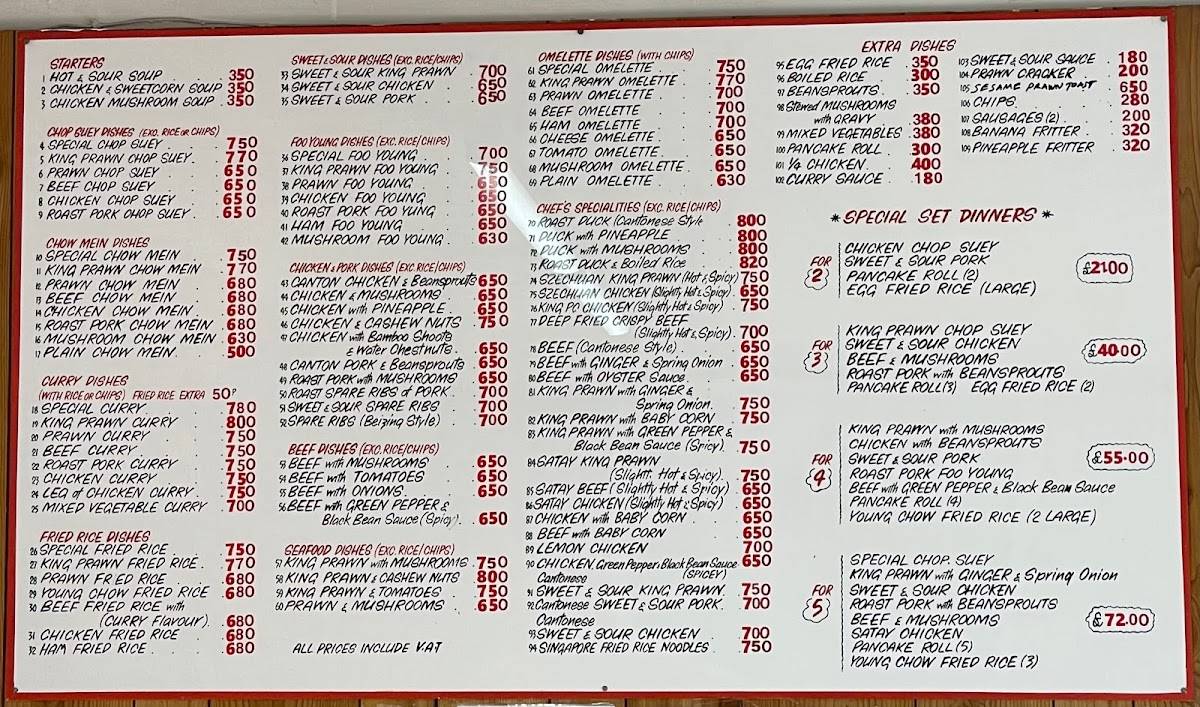 STARTERS
1 HOT & SOUR SOUP . . . . 350
2 CHICKEN & SWEETCORN SOUP . 350
3 CHICKEN MUSHROOM SOUP . 350
CHOP SUEY DISHES (EXC. RICE OR CHIPS)
4 SPECIAL CHOP SUEY . . . 750
5 KING PRAWN CHOP SUEY . . 770
6 PRAWN CHOP SUEY . . 650
7 BEEF CHOP SUEY . . 650
8 CHICKEN CHOP SUEY . . 650
9 ROAST PORK CHOP SUEY . . 650
CHOW MEIN DISHES
10 SPECIAL CHOW MEIN . . 750
11 KING PRAWN CHOW MEIN . 770
12 PRAWN CHOW MEIN . . 680
13 BEEF CHOW MEIN . . 680
14 CHICKEN CHOW MEIN . . 680
15 ROAST PORK CHOW MEIN . 680
16 MUSHROOM CHOW MEIN . 630
17 PLAIN CHOW MEIN . . 500
CURRY DISHES
(WITH RICE OR CHIPS) FRIED RICE EXTRA 50P
18 SPECIAL CURRY . . . 780
19 KING PRAWN CURRY . . 800
20 PRAWN CURRY . . . 750
21 BEEF CURRY . . . 750
22 ROAST PORK CURRY . . 750
23 CHICKEN CURRY . . 750
24 LEG of CHICKEN CURRY . . 750
25 MIXED VEGETABLE CURRY . 700
FRIED RICE DISHES
26 SPECIAL FRIED RICE . . 750
27 KING PRAWN FRIED RICE . . 770
28 PRAWN FRIED RICE . . 680
29 YOUNG CHOW FRIED RICE . 680
30 BEEF FRIED RICE with
(CURRY Flavour) . 680
31 CHICKEN FRIED RICE . 680
32 HAM FRIED RICE . . 680
SWEET & SOUR DISHES (EXC. RICE/CHIPS)
33 SWEET & SOUR KING PRAWN . 700
34 SWEET & SOUR CHICKEN . 650
35 SWEET & SOUR PORK . . 650
FOO YOUNG DISHES (EXC. RICE/CHIPS)
36 SPECIAL FOO YOUNG . . 700
37 KING PRAWN FOO YOUNG . 750
38 PRAWN FOO YOUNG . . 650
39 CHICKEN FOO YOUNG . . 650
40 ROAST PORK FOO YUNG . . 650
41 HAM FOO YOUNG . . 650
42 MUSHROOM FOO YOUNG . . 630
CHICKEN & PORK DISHES (EXC. RICE/CHIPS)
43 CANTON CHICKEN & Beansprouts 650
44 CHICKEN & MUSHROOMS . . 650
45 CHICKEN with PINEAPPLE . . 650
46 CHICKEN & CASHEW NUTS . 750
47 CHICKEN with Bamboo Shoots
& Water Chestnuts . . 650
48 CANTON PORK & Beansprouts . 650
49 ROAST PORK with MUSHROOMS . 650
50 ROAST SPARE RIBS of PORK . . 700
51 SWEET & SOUR SPARE RIBS . . 700
52 SPARE RIBS (Beijing Style) . . 700
BEEF DISHES (EXC. RICE/CHIPS)
53 BEEF with MUSHROOMS . . 650
54 BEEF with TOMATOES . . 650
55 BEEF with ONIONS . . . 650
56 BEEF with GREEN PEPPER &
Black Bean Sauce (Spicy) . . 650
SEAFOOD DISHES (EXC. RICE/CHIPS)
57 KING PRAWN with MUSHROOMS . 750
58 KING PRAWN & CASHEW NUTS . 800
59 KING PRAWN & TOMATOES . . 750
60 PRAWN & MUSHROOMS . . 650
ALL PRICES INCLUDE V.A.T
OMELETTE DISHES (WITH CHIPS)
61 SPECIAL OMELETTE . . 750
62 KING PRAWN OMELETTE . . 770
63 PRAWN OMELETTE . . 700
64 BEEF OMELETTE . . 700
65 HAM OMELETTE . . 700
66 CHEESE OMELETTE . . 650
67 TOMATO OMELETTE . . 650
68 MUSHROOM OMELETTE . . 650
69 PLAIN OMELETTE . . 630
CHEF'S SPECIALITIES (EXC. RICE/CHIPS)
70 ROAST DUCK (Cantonese Style . 800
71 DUCK with PINEAPPLE . . 800
72 DUCK with MUSHROOMS . . 800
73 ROAST DUCK & Boiled Rice . . 820
74 SZECHUAN KING PRAWN (Hot & Spicy) 750
75 SZECHUAN CHICKEN (Slightly Hot & Spicy) . 650
76 KING PO CHICKEN (Slightly Hot & Spicy) . 750
77 DEEP FRIED CRISPY BEEF
(Slightly Hot & Spicy) . 700
78 BEEF (Cantonese Style) . . 650
79 BEEF with GINGER & Spring Onion . 650
80 BEEF with OYSTER Sauce . . 650
81 KING PRAWN with GINGER &
Spring Onion . . 750
82 KING PRAWN with BABY CORN . . 750
83 KING PRAWN with GREEN PEPPER &
Black Bean Sauce (Spicy) . 750
84 SATAY KING PRAWN
(Slightl. Hot & Spicy) . 750
85 SATAY BEEF (Slightly Hot & Spicy) . 650
86 SATAY CHICKEN (Slightly Hot & Spicy) . 650
87 CHICKEN with BABY CORN . . 650
88 BEEF with BABY CORN . . 650
89 LEMON CHICKEN . . 700
90 CHICKEN Green Pepper & Black Bean Sauce . 650
(SPICEY)
Cantonese
91 SWEET & SOUR KING PRAWN . 750
92 Cantonese SWEET & SOUR PORK . . 700
Cantonese
93 SWEET & SOUR CHICKEN . . 700
94 SINGAPORE FRIED RICE NOODLES . . 750
EXTRA DISHES
95 EGG FRIED RICE . 350
96 BOILED RICE . . 300
97 BEANSPROUTS . . 350
98 Stewed MUSHROOMS
with GRAVY . 380
99 MIXED VEGETABLES . 380
100 PANCAKE ROLL . . 300
101 1/4 CHICKEN . . 400
102 CURRY SAUCE . . 180
103 SWEET & SOUR SAUCE . 180
104 PRAWN CRACKER . 200
105 SESAME PRAWN TOAST 650
106 CHIPS . . . 280
107 SAUSAGES (2) . . 200
108 BANANA FRITTER . 320
109 PINEAPPLE FRITTER . 320
*SPECIAL SET DINNERS*
FOR 2
CHICKEN CHOP SUEY
SWEET & SOUR PORK
PANCAKE ROLL (2)
EGG FRIED RICE (LARGE)
£21.00
FOR 3
KING PRAWN CHOP SUEY
SWEET & SOUR CHICKEN
BEEF & MUSHROOMS
ROAST PORK with BEANSPROUTS
PANCAKE ROLL (3) EGG FRIED RICE (2)
£40.00
FOR 4
KING PRAWN with MUSHROOMS
CHICKEN with BEANSPROUTS
SWEET & SOUR PORK
ROAST PORK FOO YOUNG
BEEF with GREEN PEPPER & Black Bean Sauce
PANCAKE ROLL (4)
YOUNG CHOW FRIED RICE (2 LARGE)
£55.00
FOR 5
SPECIAL CHOP SUEY
KING PRAWN with GINGER & Spring Onion
SWEET & SOUR CHICKEN
ROAST PORK with BEANSPROUTS
BEEF & MUSHROOMS
SATAY CHICKEN
PANCAKE ROLL (5)
YOUNG CHOW FRIED RICE (3)
£72.00